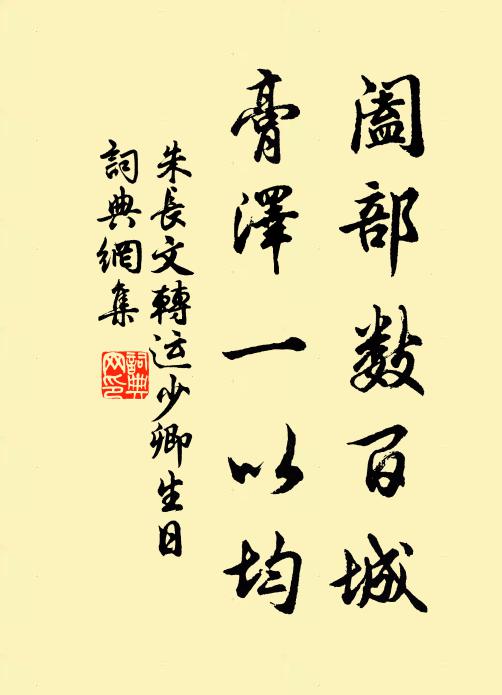 阖部数百城
膏澤一以均
朱長文轉运少卿生日
詞典網集
詞典網印